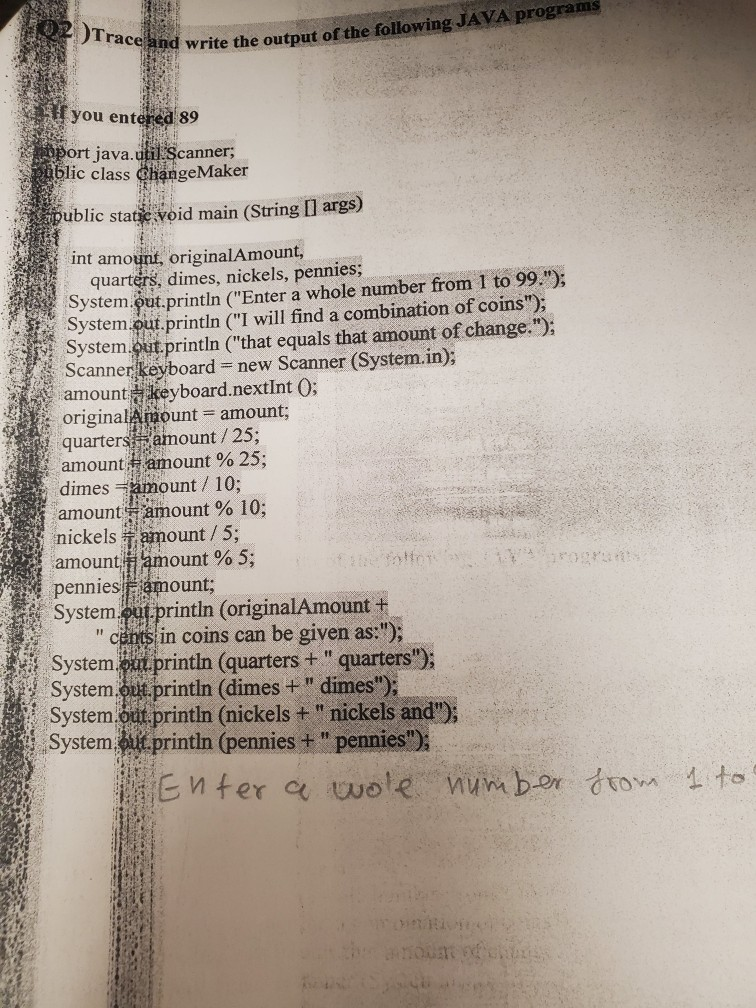 Q2 )Trace and write the output of the following JAVA programs
If you entered 89
import java.util.Scanner;
public class ChangeMaker
public static void main (String [] args)
int amount, originalAmount,
quarters, dimes, nickels, pennies;
System.out.println ("Enter a whole number from 1 to 99.");
System.out.println ("I will find a combination of coins");
System.out.println ("that equals that amount of change.");
Scanner keyboard = new Scanner (System.in);
amount = keyboard.nextInt ();
originalAmount = amount;
quarters = amount / 25;
amount = amount % 25;
dimes = amount / 10;
amount = amount % 10;
nickels = amount / 5;
amount = amount % 5;
pennies = amount;
System.out.println (originalAmount +
" cents in coins can be given as:");
System.out.println (quarters + " quarters");
System.out.println (dimes + " dimes");
System.out.println (nickels + " nickels and");
System.out.println (pennies + " pennies");
Enter a wole number from 1 to